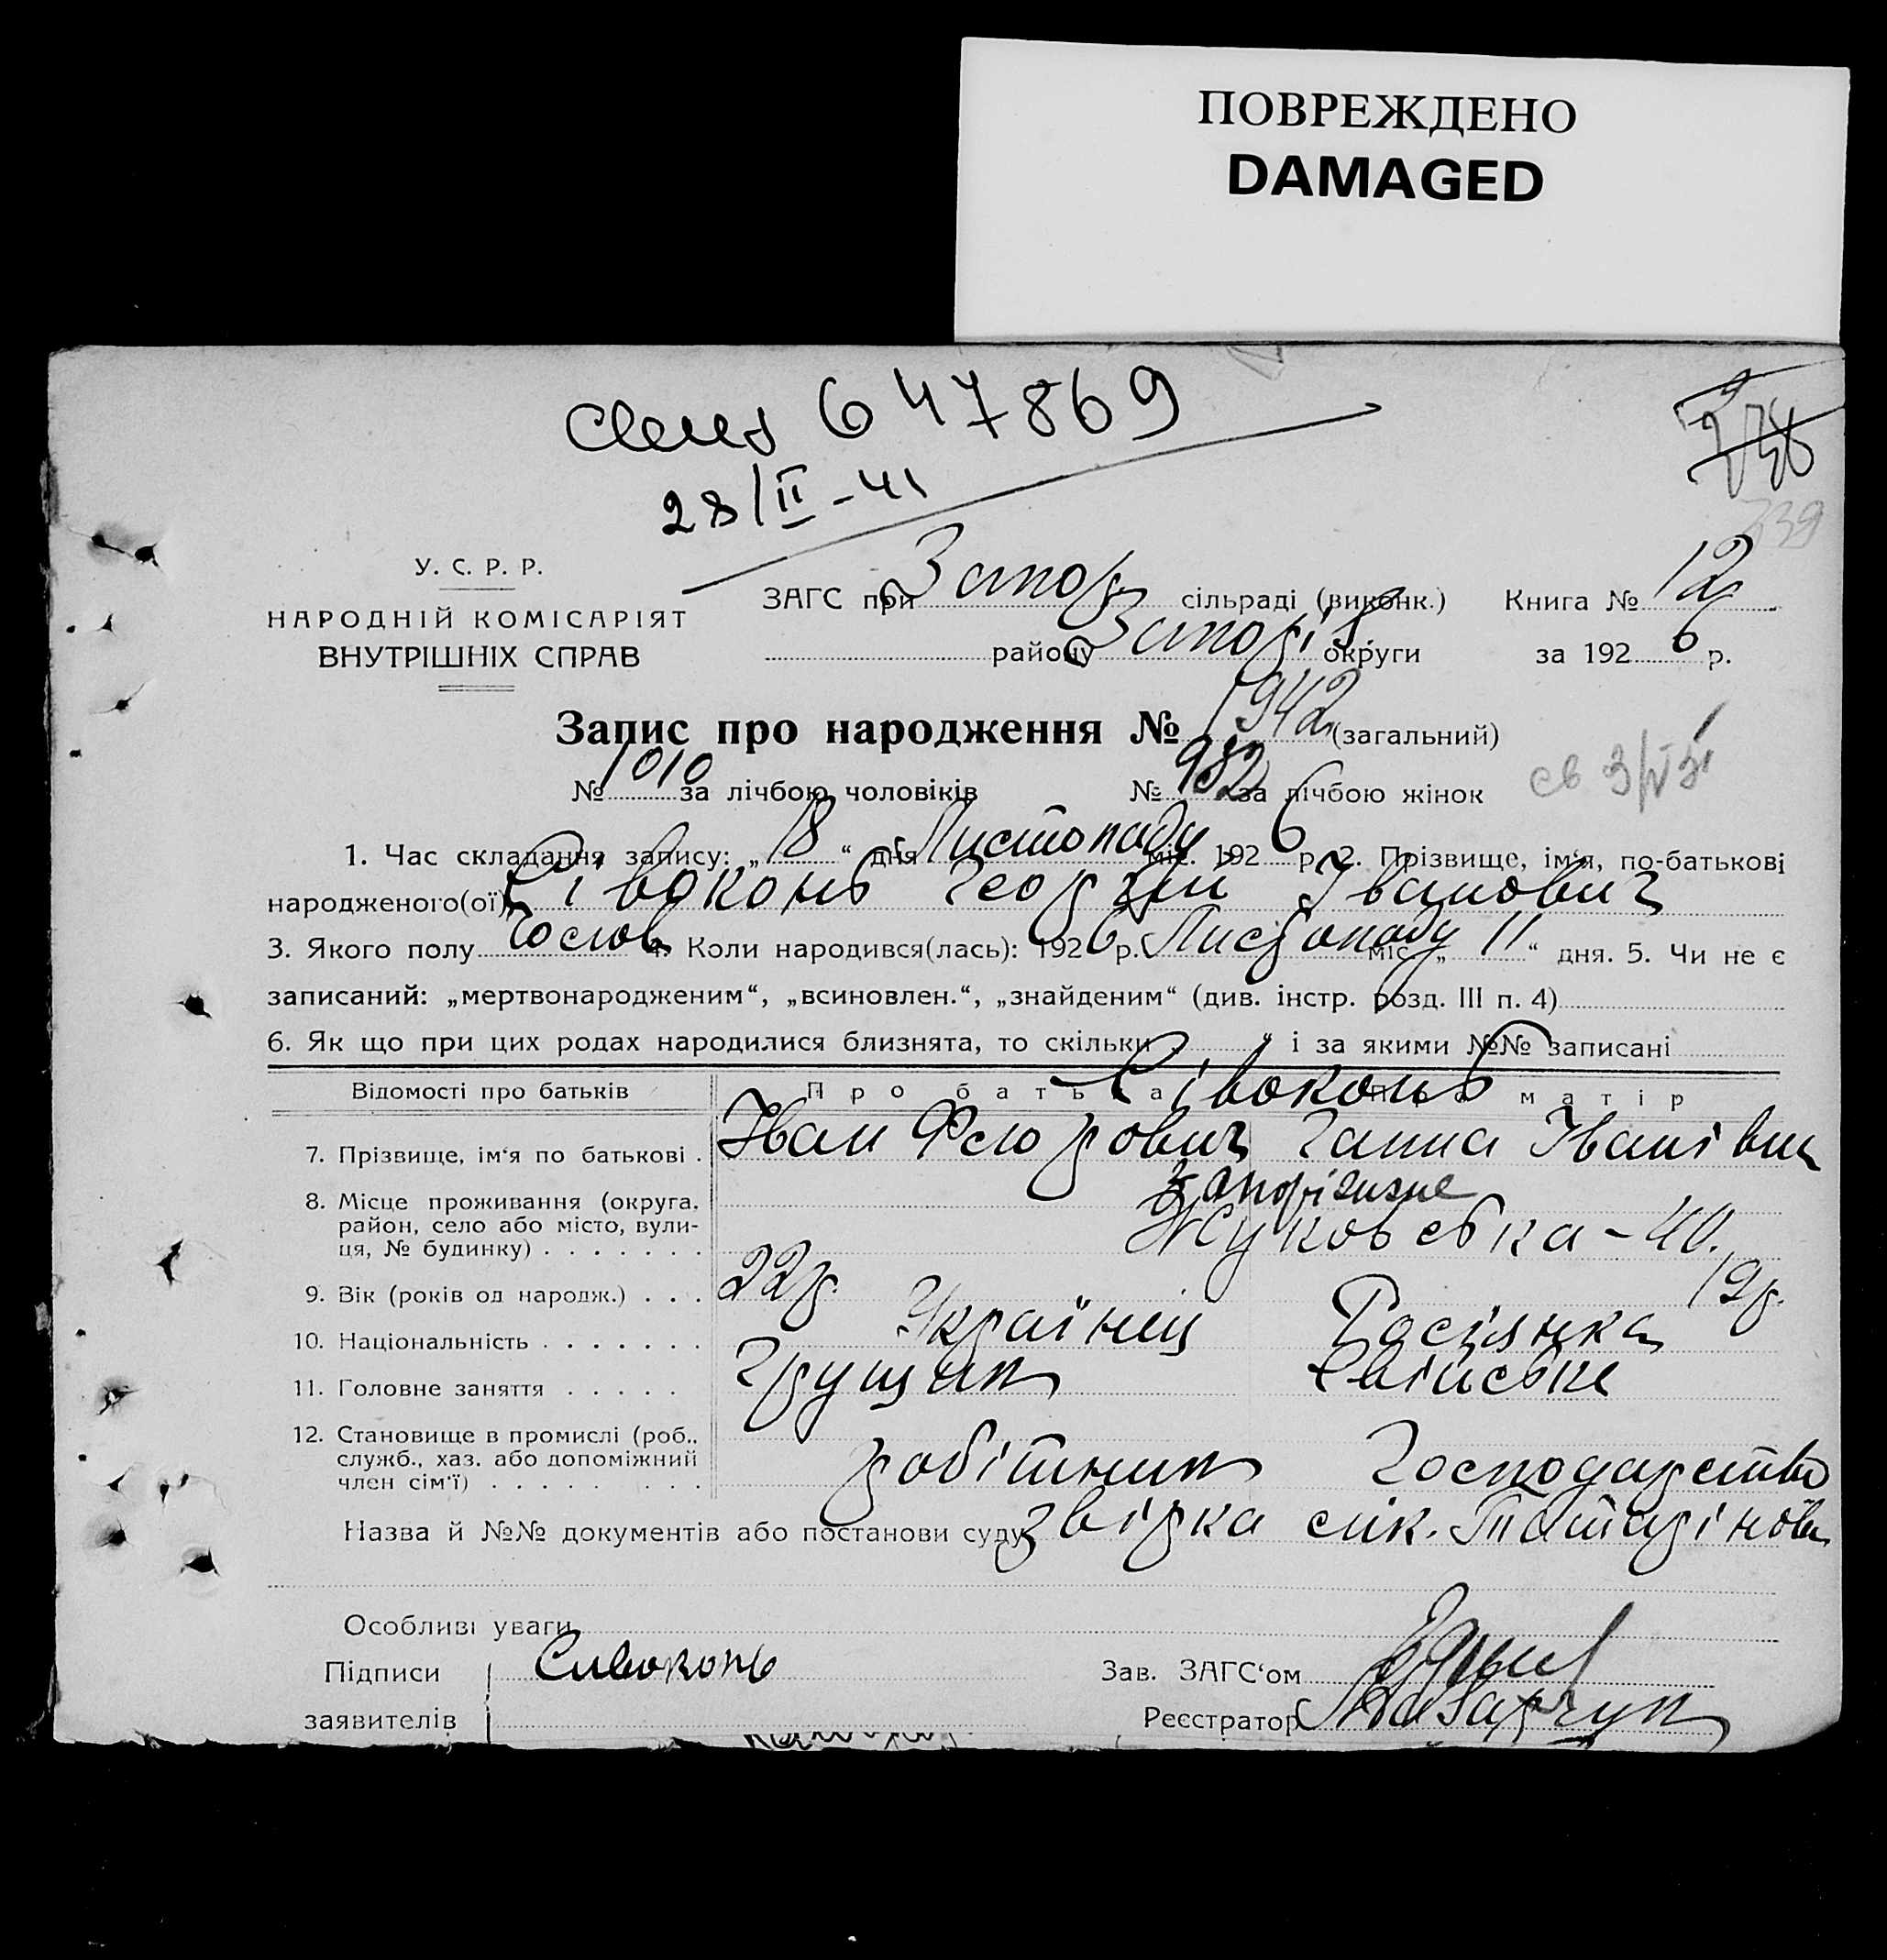 ПОВРЕЖДЕНО
DAMAGED
647869
28/II-41
339
У. С. Р. Р.
НАРОДНІЙ КОМІСАРІЯТ
ВНУТРІШНІХ СПРАВ
ЗАГС при Запор сільраді (виконк.) Книга № 12
району Запоріз округи за 1926 р.
Запис про народження № 1942 (загальний)
№ 1010 за лічбою чоловіків № 982 за лічбою жінок
1. Час складання запису: „18“ дня Листопаду міс. 1926 р. 2. Прізвище, ім'я, по-батькові
народженого(ої) Сівоконь Георгій Іванович
3. Якого полу чолов 4. Коли народився(лась): 1926 р. Листопаду міс. „11“ дня. 5. Чи не є
записаний: „мертвонародженим“, „всиновлен.“, „знайденим“ (див. інстр. розд. III п. 4)
6. Як що при цих родах народилися близнята, то скільки „ “ і за якими №№ записані
Відомості про батьків Про батька Про матір
Сівоконь
7. Прізвище, ім'я по батькові . Іван Федорович Ганна Іванівна
8. Місце проживання (округа, Запоріжже
район, село або місто, вули-
ця, № будинку) . . . . . . . Жуковська - 40.
9. Вік (років од народж.) . . . 22р. 19р.
10. Національність . . . . . . . Українец Росіянка
11. Головне заняття . . . . . Грущик Хатнське
12. Становище в промислі (роб.,
служб., хаз. або допоміжний
член сім'ї) . . . . . . . . робітник Господарство
Назва й №№ документів або постанови суду звірка
Особливі уваги
Підписи Сивоконь Зав. ЗАГС'ом
заявителів Реєстратор Назарчук